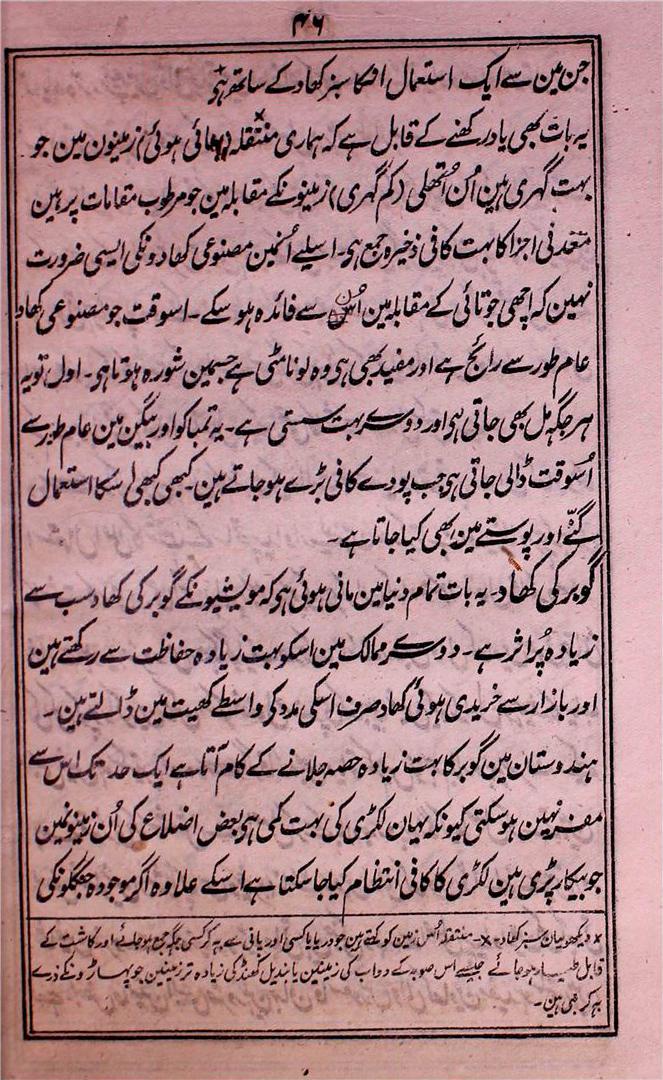 ۴۶
جن مین سے ایک استعمال انکا سبز کھاد کے ساتھ ہی
یہ بات بھی یاد رکھنے کے قابل ہے کہ ہماری منتقلہ (بہائی ہوئی) زمینون مین جو
بہت گہری ہین اُن اُتھلی (کم گہری) زمینونکے مقابلہ مین جو مرطوب مقامات پر ہین
معدنی اجزا کا بہت کافی ذخیرہ جمع ہی۔ اسلیے اُنمین مصنوعی کھادونکی ایسی ضرورت
نہین کہ اچھی جوتائی کے مقابلہ مین اُس سے فائدہ ہو سکے۔ اسوقت جو مصنوعی کھاد
عام طور سے رائج ہے اور مفید بھی ہی وہ لونا مٹی ہے جسمین شورہ ہوتا ہی۔ اول تو یہ
ہر جگہ مل بھی جاتی ہی اور دوسرے بہت سستی ہے۔ یہ تمباکو اور بیگین مین عام طور سے
اُسوقت ڈالی جاتی ہی جب پودے کافی بڑے ہو جاتے ہین۔ کبھی کبھی اسکا استعمال
گنّے اور پوستے مین بھی کیا جاتا ہے۔
گوبر کی کھاد۔ یہ بات تمام دنیا مین مانی ہوئی ہی کہ مویشیونکے گوبر کی کھاد سب سے
زیادہ پُر اثر ہے۔ دوسرے ممالک مین اسکو بہت زیادہ حفاظت سے رکھتے ہین
اور بازار سے خریدی ہوئی کھاد صرف اسکی مدد کے واسطے کھیت مین ڈالتے ہین۔
ہندوستان مین گوبر کا بہت زیادہ حصہ جلانے کے کام آتا ہے ایک حد تک اس سے
مفر نہین ہو سکتی کیونکہ یہان لکڑی کی بہت کمی ہی بعض اضلاع کی اُن زمینونمین
جو بیکار پڑی ہین لکڑی کا کافی انتظام کیا جا سکتا ہے اسکے علاوہ اگر موجودہ جنگلونکی
× دیکھو بیان سبز کھاد۔ ×۔ منتقلہ اُس زمین کو کہتے ہین جو دریا یا کسی اور پانی سے بہ کر کسی جگہ جمع ہو جائے اور کاشت کے
قابل طیار ہو جائے جیسے اس صوبہ کے دواب کی زمینین یا بندیل کھنڈ کی زیادہ تر زمینین جو پہاڑونکے ذرے
بہ کر بنی ہین۔